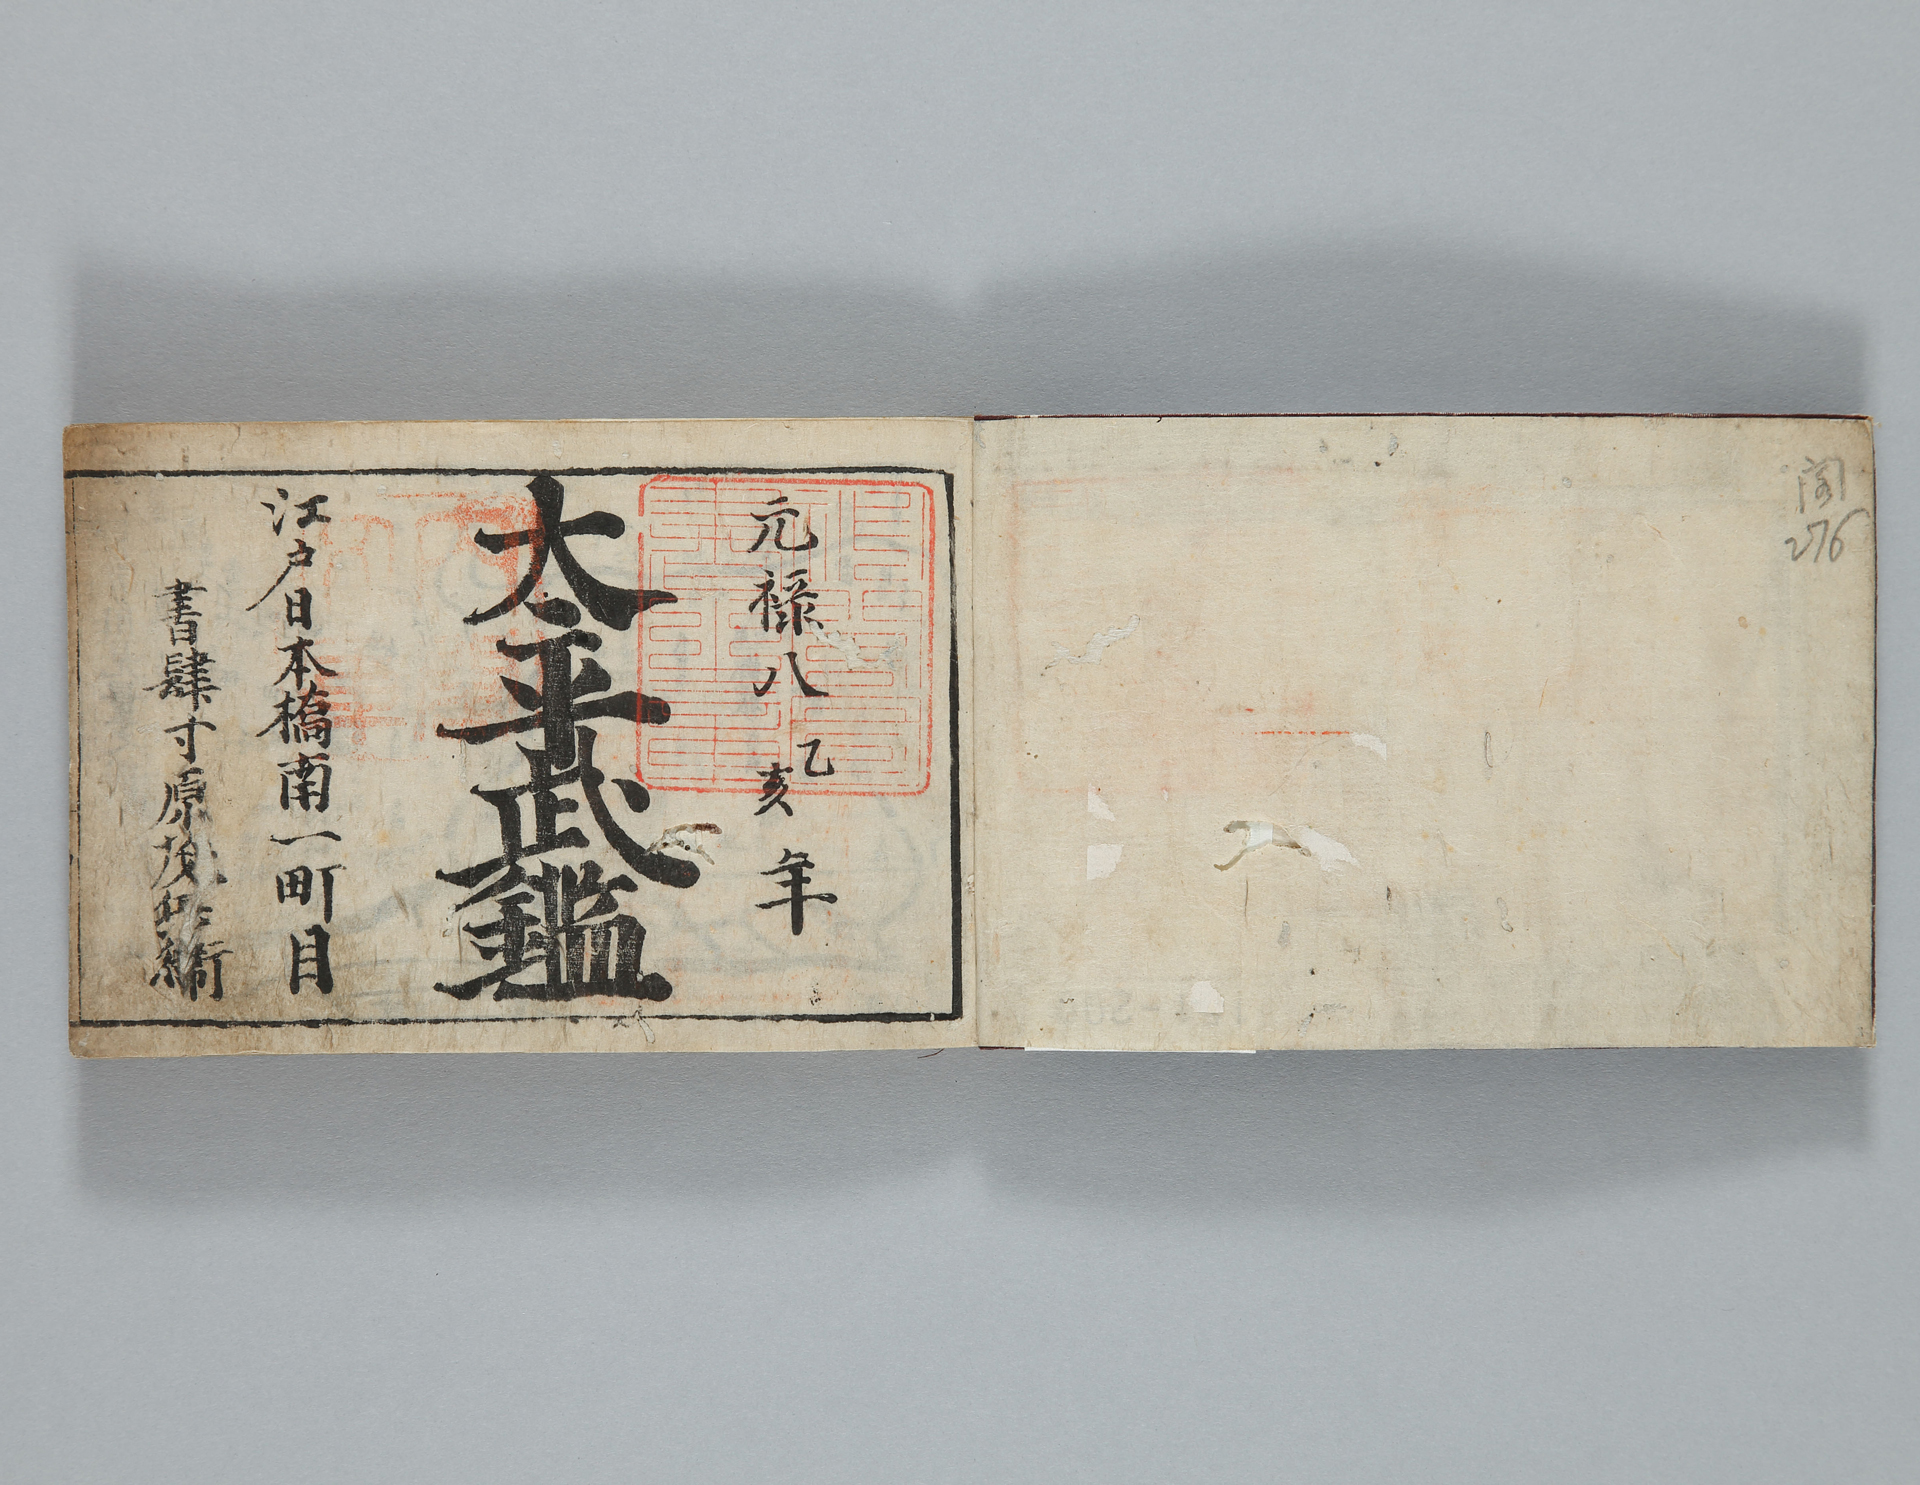 閣
276
元禄八乙亥年
太平武鑑
江戸日本橋南一町目
書肆寸原茂兵衛